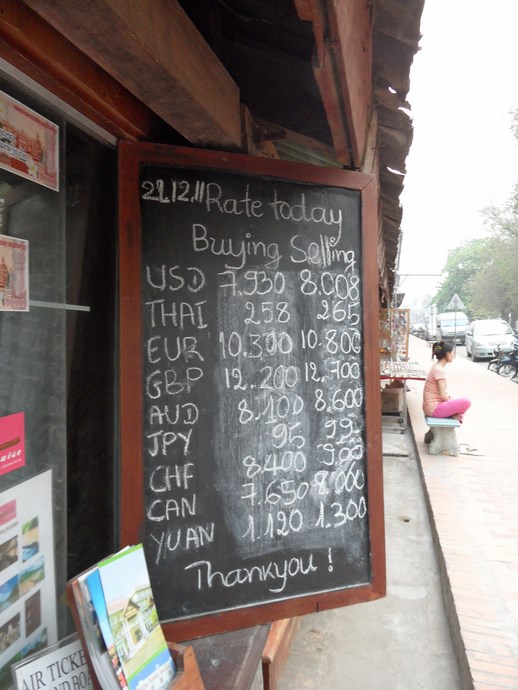 21.12.11 Rate today
Buying Selling
USD 7.930 8.008
THAI 258 265
EUR 10.300 10.800
GBP 12.200 12.700
AUD 8.100 8.600
JPY 95 99
CHF 8.400 9.00
CAN 7.650 8.000
YUAN 1.120 1.300
Thankyou !
AIR TICKE
ND BO